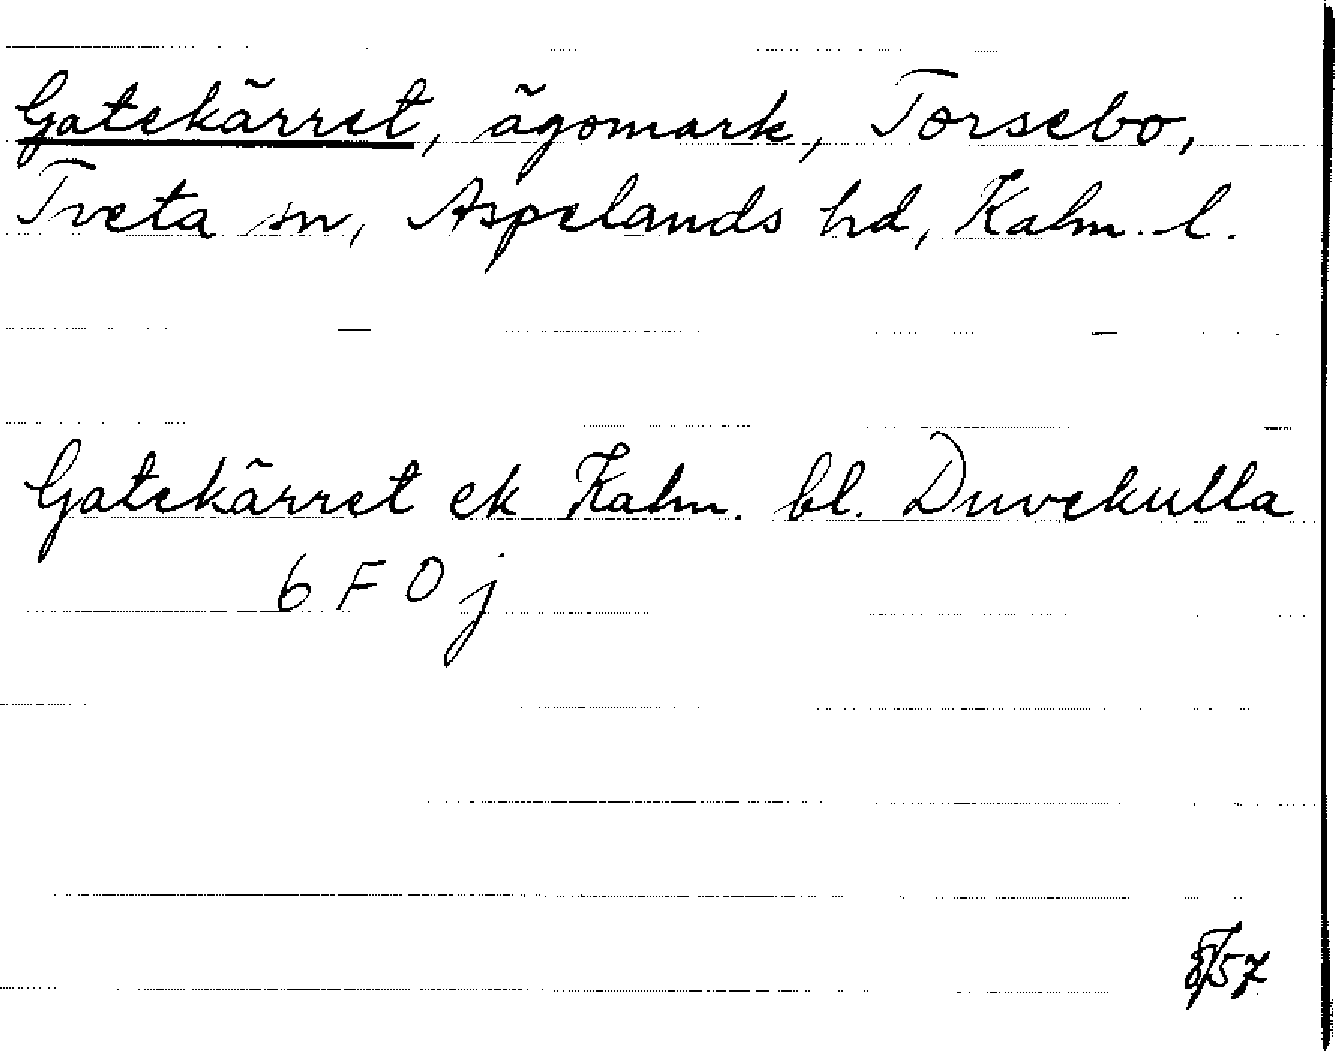 Gatekärret, ägomark, Torsebo,
Tveta sn, Aspelands hd, Kalm. l.
Gatekärret ek Kalm. bl. Duvekulla
6 F 0 j
57